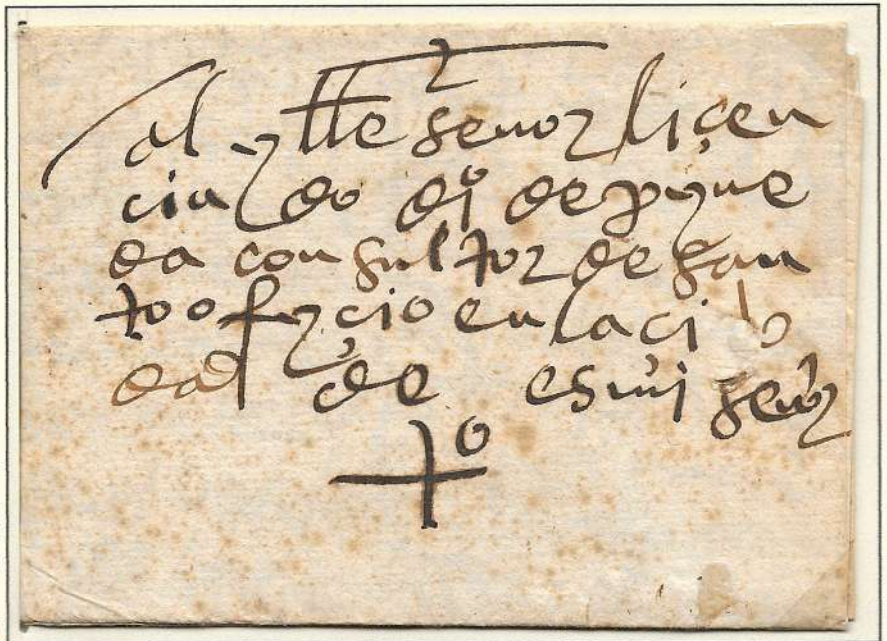 al ylle señor liçen
ciado dio de pyne
da consultor de san
to ofyçio en la ci b
dad de es mi señor
to